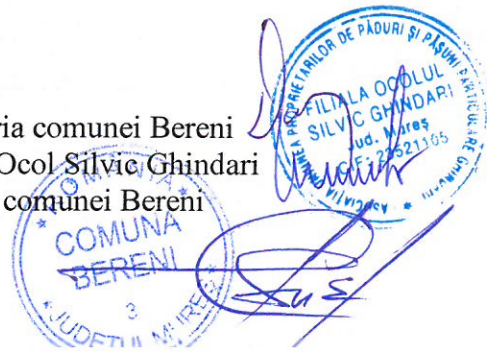 ria comunei Bereni
Ocol Silvic Ghindari
comunei Bereni
PROPRIETARILOR DE PĂDURI ȘI PĂȘUNI PARTICULARE
FILIALA OCOLUL
SILVIC GHINDARI
Jud. Mureș
ROMÂNIA
COMUNA
BERENI
3
JUDEȚUL MUREȘ